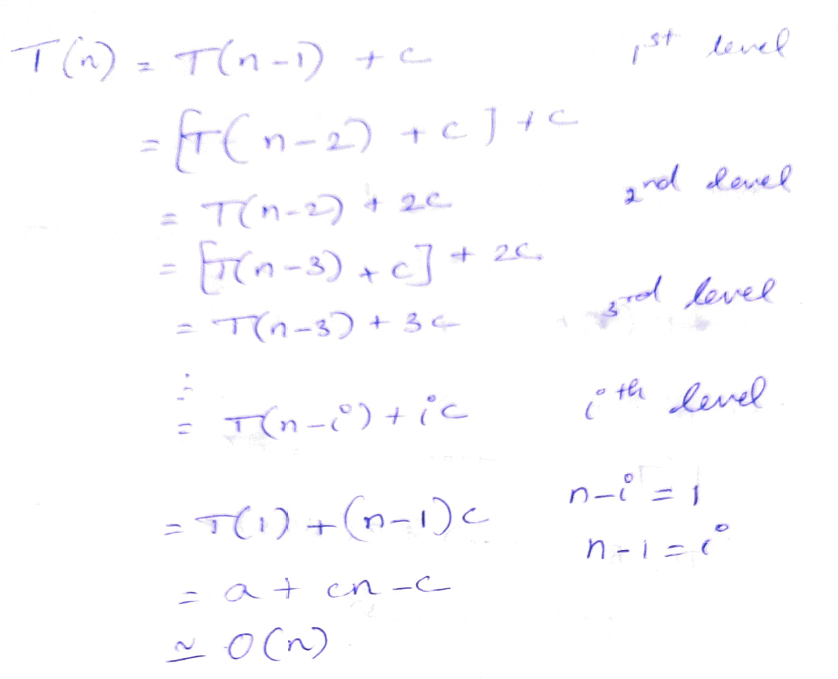 T(n) = T(n-1) + c 1st level
= [T(n-2) + c] + c
= T(n-2) + 2c 2nd level
= [T(n-3) + c] + 2c
= T(n-3) + 3c 3rd level
⋮
= T(n-i) + ic ith level
= T(1) + (n-1)c n-i = 1
n-1 = i
= a + cn - c
≃ O(n)